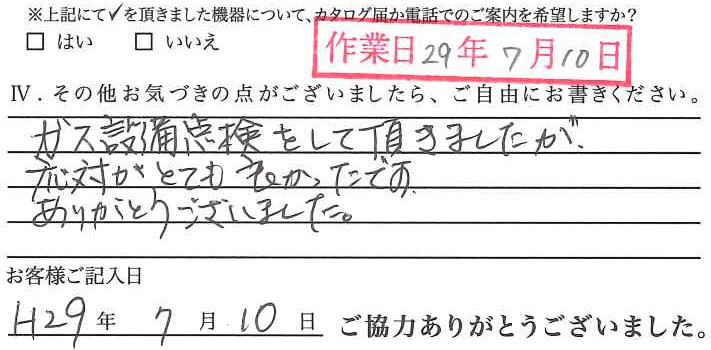 ※上記にて✓を頂きました機器について、カタログ届か電話でのご案内を希望しますか？
□ はい □ いいえ
作業日29年 7月10日
Ⅳ．その他お気づきの点がございましたら、ご自由にお書きください。
ガス設備点検をして頂きましたが、
応対がとても良かったです。
ありがとうございました。
お客様ご記入日
H29 年 7 月 10 日 ご協力ありがとうございました。